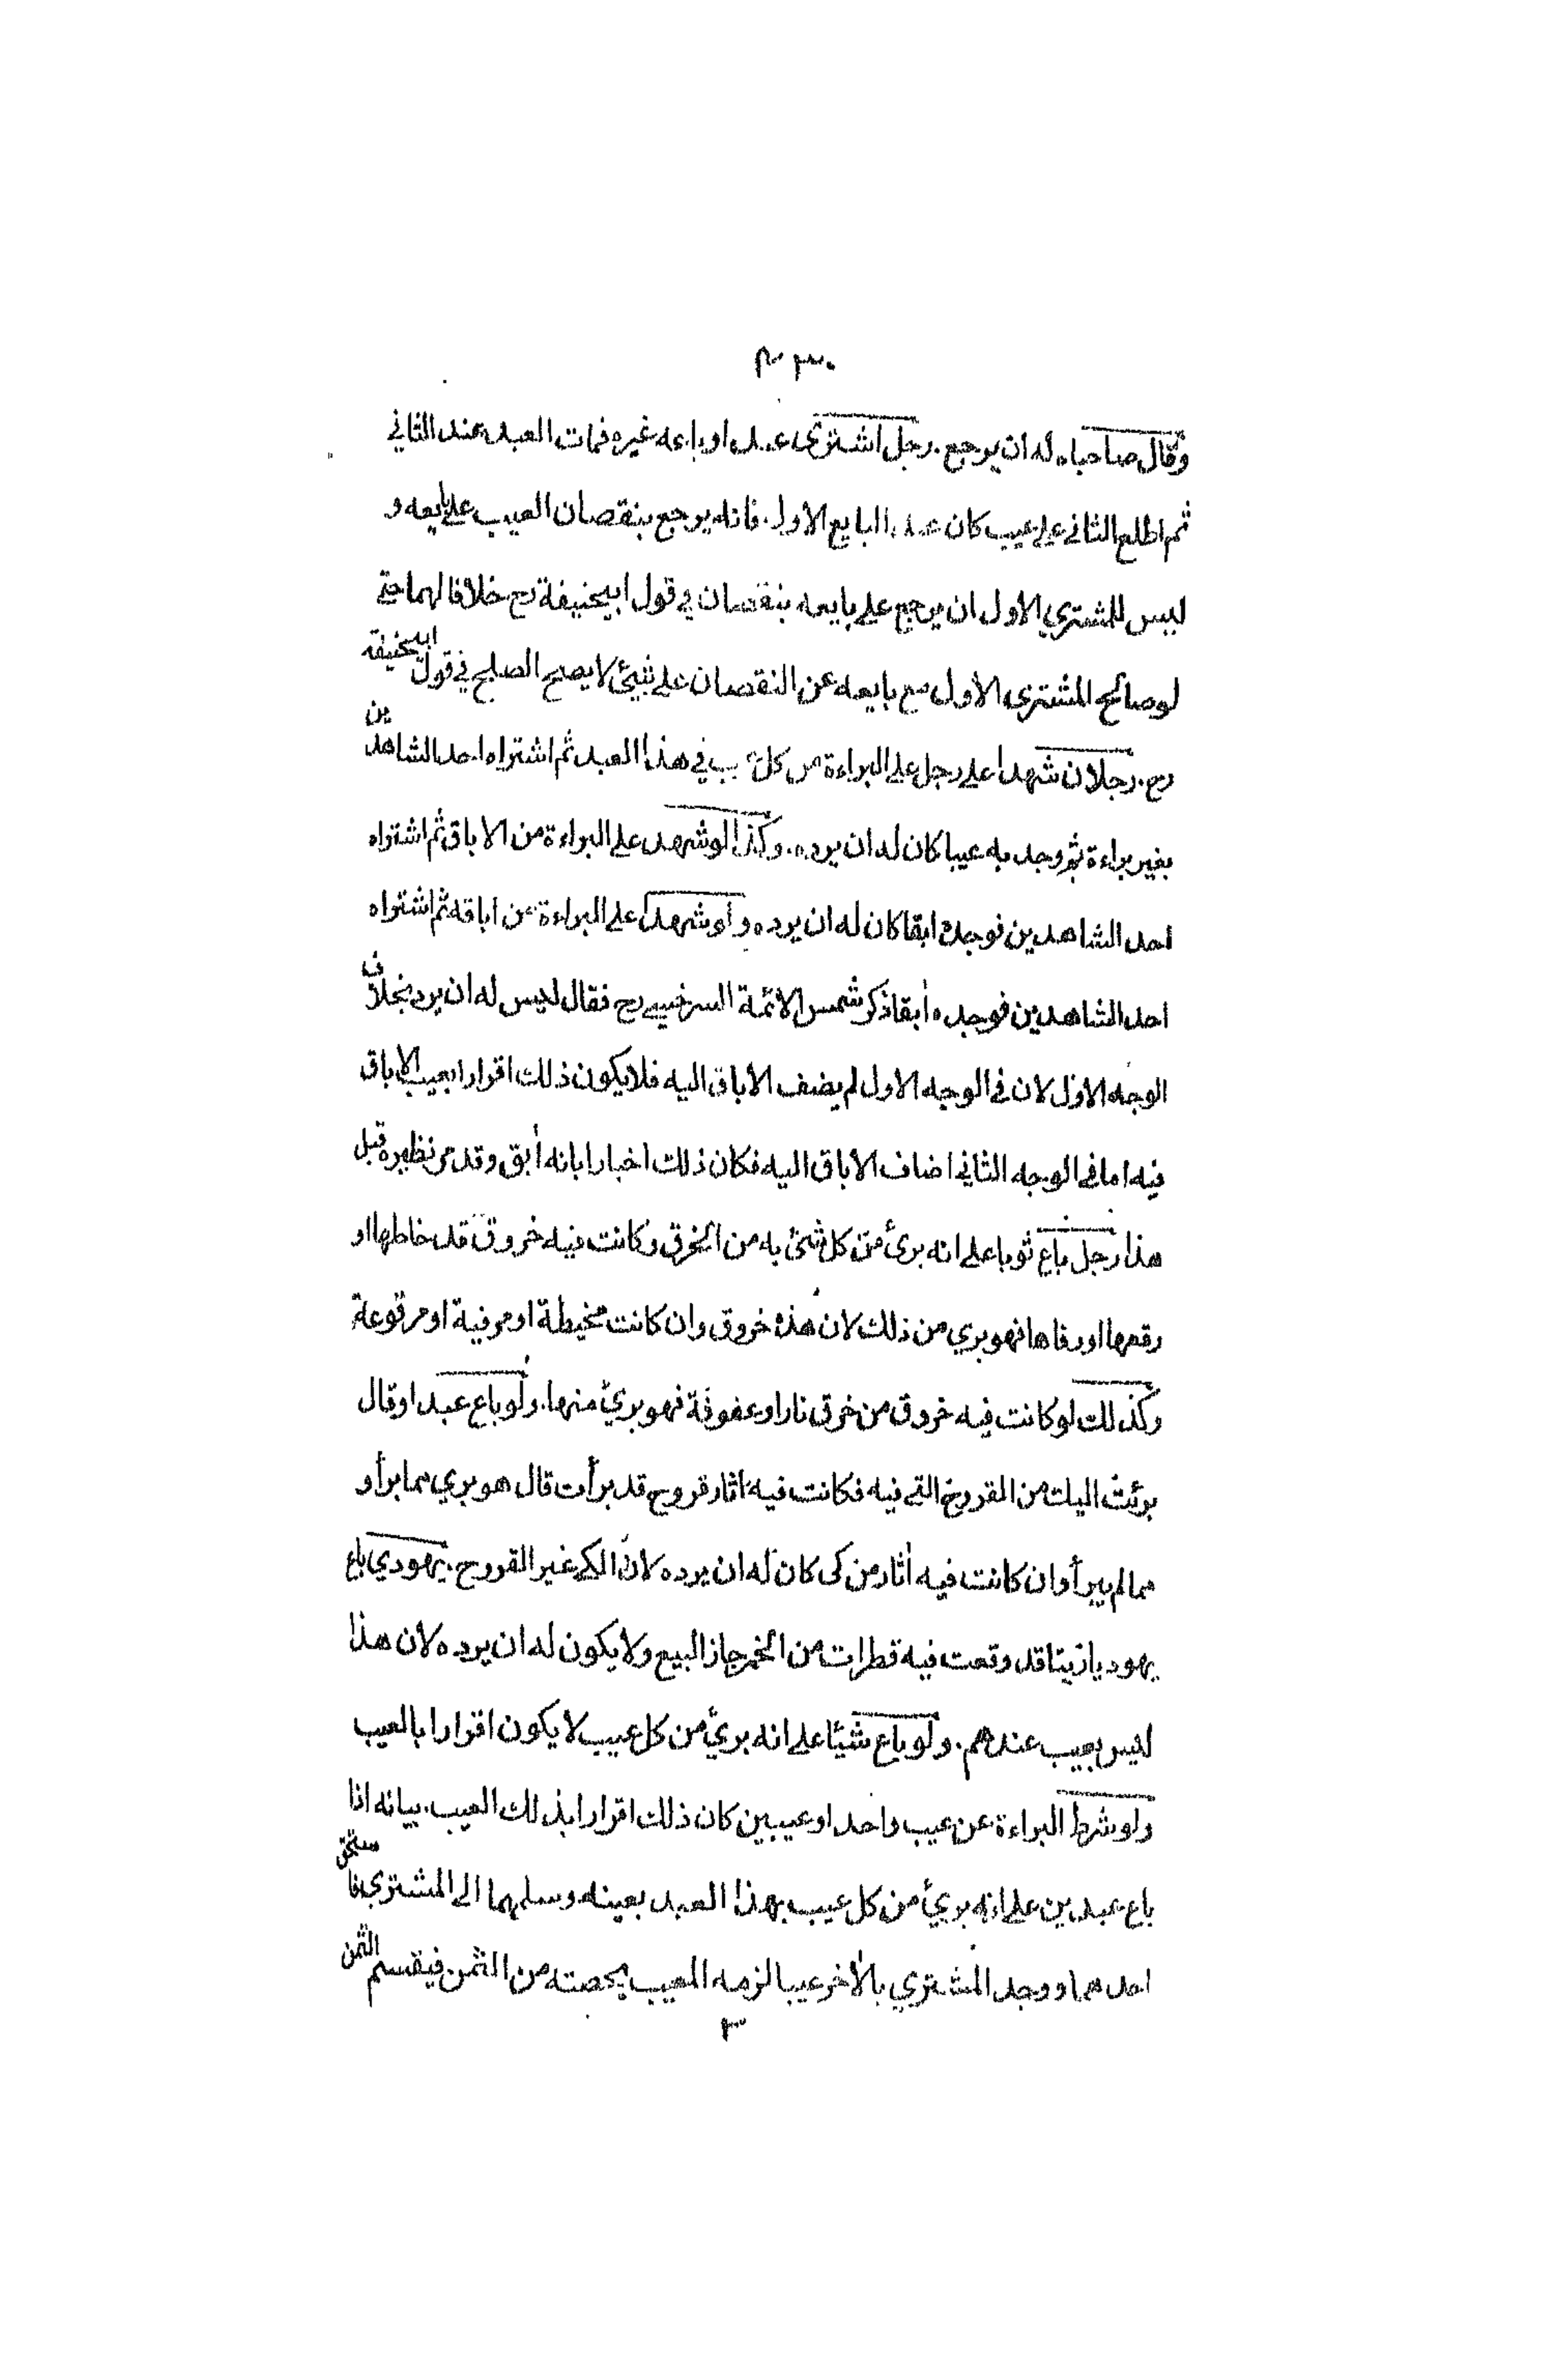 ٣٣٠
وقال صاحباه له ان يرجع. رجل اشترى عبدا وباعه غيره فمات العبد عند الثاني
ثم اطلع الثاني على عيب كان عند البايع الاول. فانه يرجع بنقصان العيب على بايعه و
ليس للمشتري الاول ان يرجع على بايعه بنقصان في قول ابيحنيفة رح خلافا لهما حتى
لو صالح المشترى الاول مع بايعه عن النقصان على شيئ لا يصح الصلح في قول ابيحنيفة
رح. رجلان شهدا على رجل على البراءة من كل عيب في هذا العبد ثم اشتراه احد الشاهدين
بغير براءة ثم وجد به عيبا كان له ان يرده. وكذا لو شهد على البراءة من الاباق ثم اشتراه
احد الشاهدين فوجده ابقا كان له ان يرده ولو شهدا على البراءة من اباقه ثم اشتراه
احد الشاهدين فوجده أبقا ذكر شمس الائمة السرخسي رح فقال ليس له ان يرد بخلاف
الوجه الاول لان في الوجه الاول لم يضف الاباق اليه فلا يكون ذلك اقرارا بعيب الاباق
فيه اما في الوجه الثاني اضاف الاباق اليه فكان ذلك اخبارا بانه أبق وقد مر نظيره قبل
هذا رجل باع ثوبا على انه برئ من كل شئ به من الخرق وكانت فيه خروق قد خاطها او
رقعها او رفاها فهو بري من ذلك لان هذه خروق وان كانت مخيطة او مرفية او مرقوعة
وكذلك لو كانت فيه خروق من خرق نار او عفونة فهو بريئ منها. ولو باع عبدا وقال
برئت اليك من القروح التي فيه فكانت فيه اثار قروح قد برأت قال هو بري مما برأ و
مما لم يبرأ وان كانت فيه أثار من كى كان له ان يرده لان الكي غير القروح. يهودي باع
يهوديا زيتا قد وقعت فيه قطرات من الخمر جاز البيع ولا يكون له ان يرده لان هذا
ليس بعيب عندهم. ولو باع شيئا على انه بريئ من كل عيب لا يكون اقرارا بالعيب
ولو شرط البراءة عن عيب واحد او عيبين كان ذلك اقرارا بذلك العيب. بيانه اذا
باع عبدين على انه بريئ من كل عيب بهذا العبد بعينه وسلمهما الى المشتري فاستحق
احدهما ووجد المشتري بالأخر عيبا لزمه المعيب بحصته من الثمن فيقسم الثمن
٣